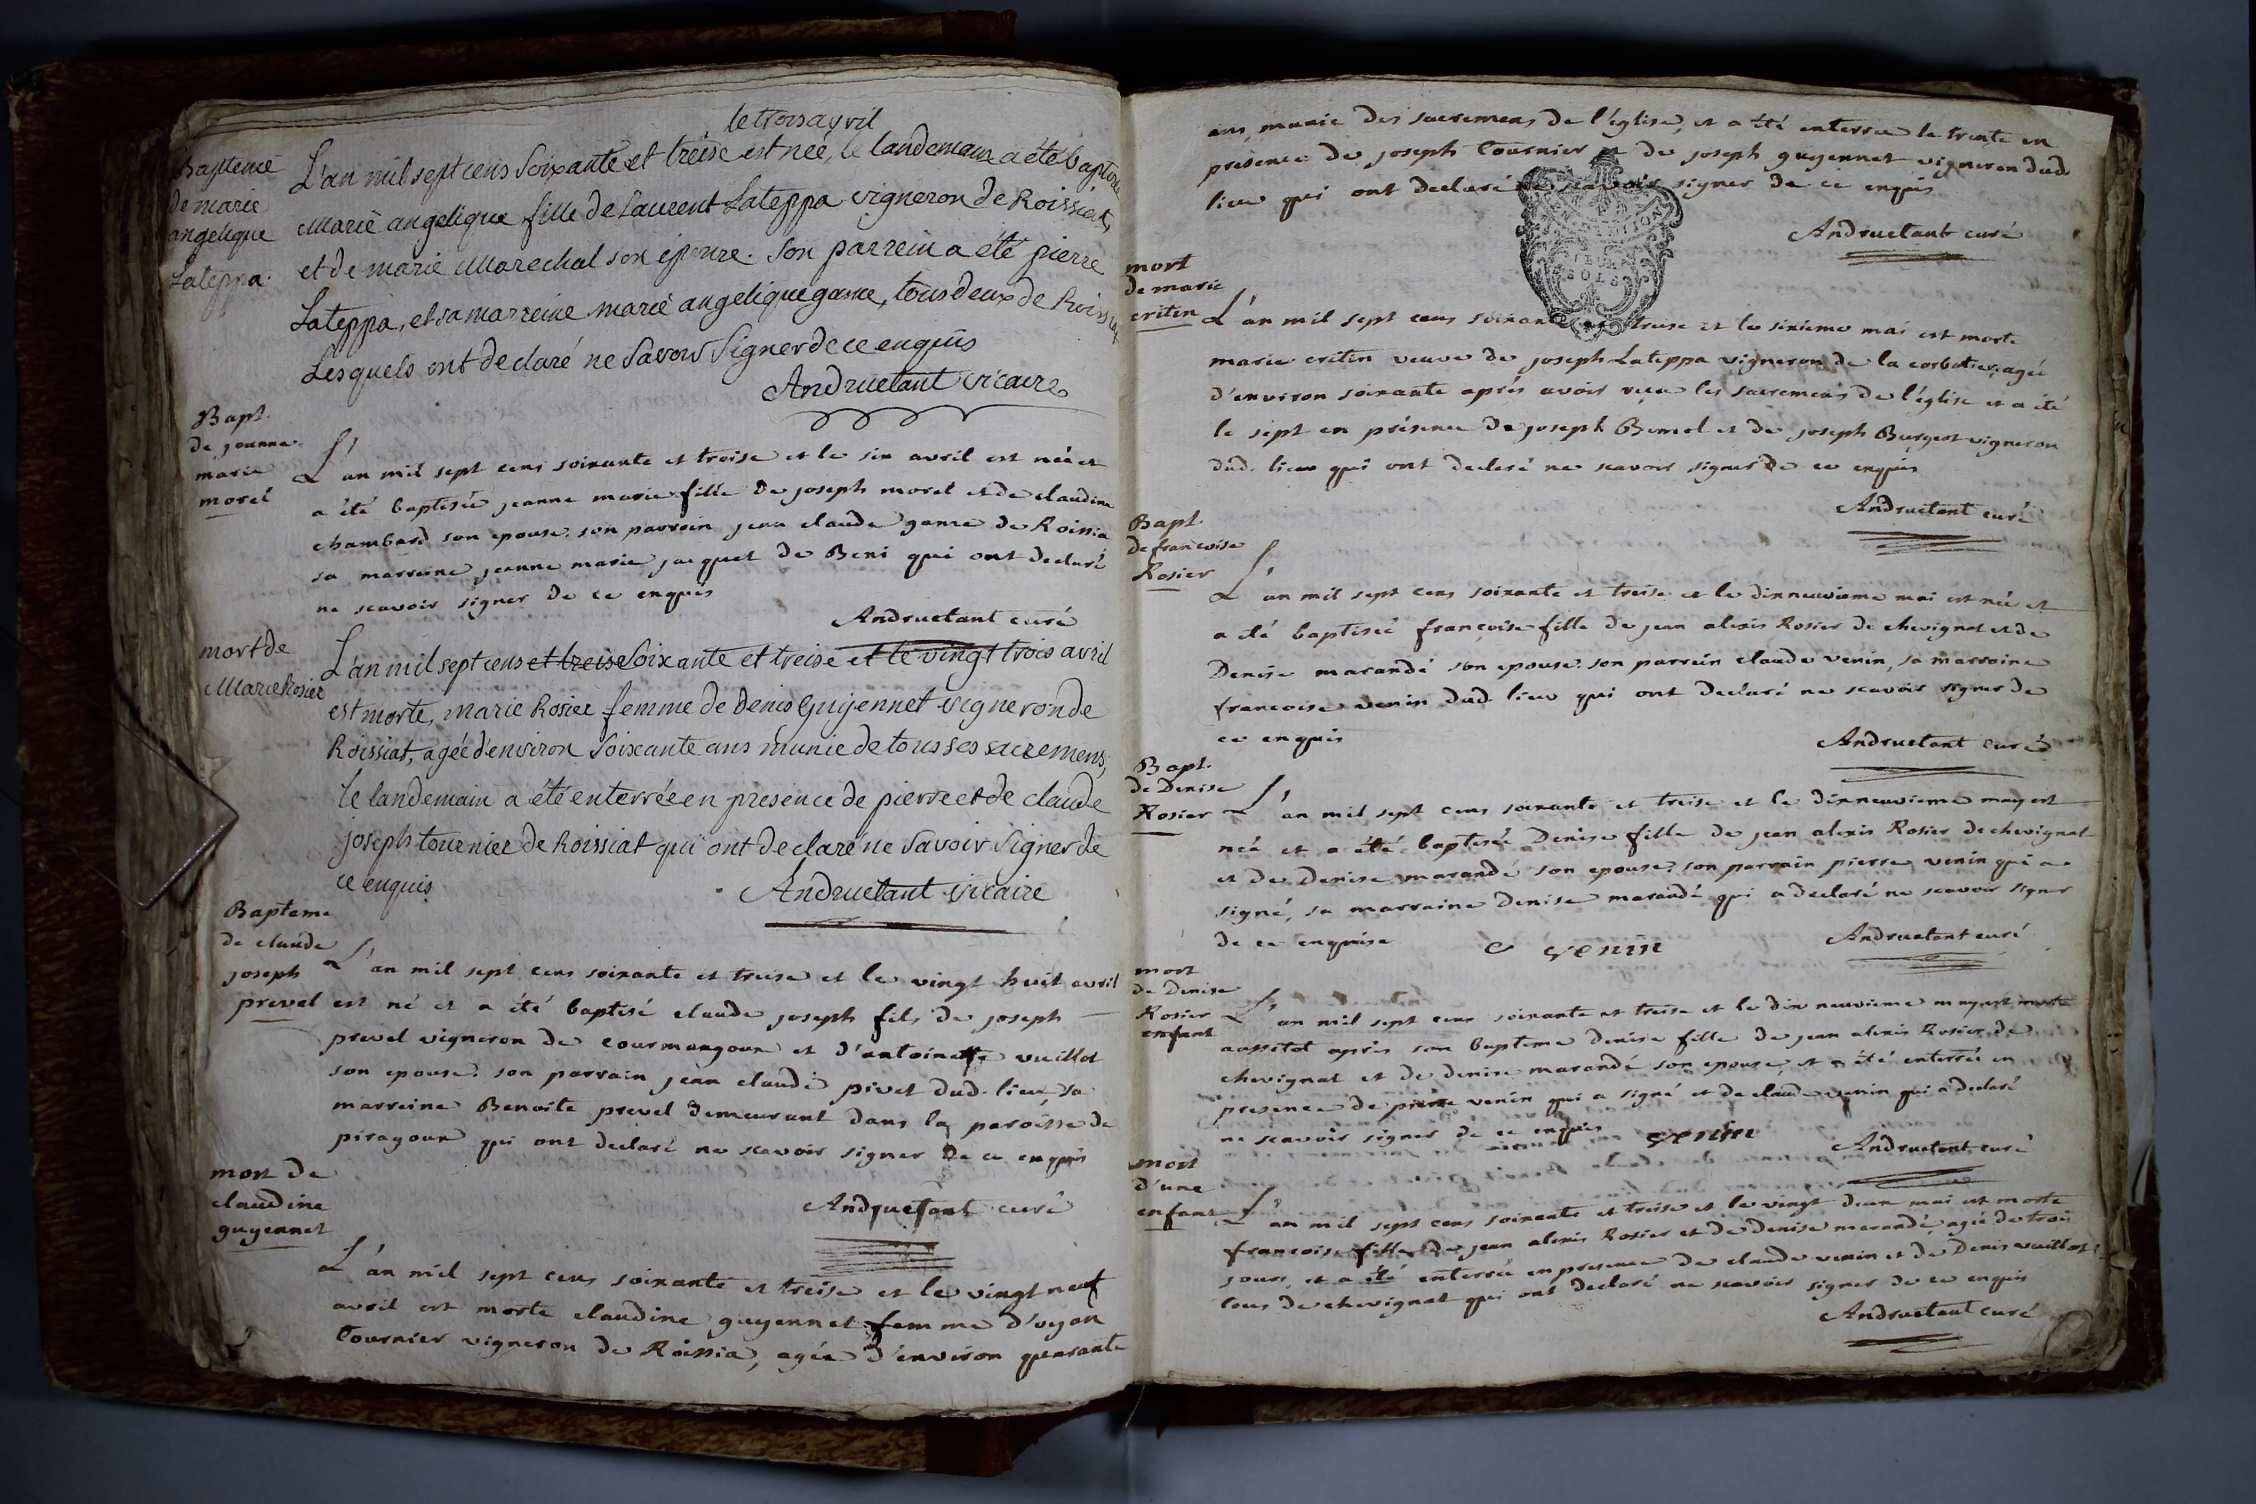 le trois avril
Bapteme
de marie
angelique
Lateppa.
L'an mil sept cens soixante et treise est née, le landemain a été baptisée
Marie angelique fille de Laurent Lateppa vigneron de Roissiat,
et de marie Marechal son épouse. Son parrein a été pierre
Lateppa, et sa marreine marie angelique game, tous deux de Roissiat
Lesquels ont declaré ne Savoir Signer de ce enquis
Andruetant vicaire
Bapt.
de jeanne
marie
morel
L'an mil sept cens soixante et treise et le six avril est née et
a été baptisée jeanne marie fille de joseph morel et de claudine
chambard son epouse. son parrain jean claude game de Roissia
sa marreine jeanne marie jacquet de Beni qui ont declaré
ne scavoir signer de ce enquis
Andruetant curé
mort de
Marie Rosier
L'an mil sept cens et treise Soixante et treise et le vingt trois avril
est morte, Marie Rosier femme de Denis Guyennet vigneron de
Roissiat, agée d'environ Soixante ans munie de tous ses sacremens;
le landemain a été enterrée en presence de pierre et de claude
joseph tournier de Roissiat qui ont declaré ne Savoir Signer de
ce enquis
Andruetant Vicaire
Bapteme
de claude
joseph
prevel
L'an mil sept cens soixante et treise et le vingt huit avril
est né et a été baptisé claude joseph fils de joseph
prevel vigneron de courmangoux et d'antoinette vuillot
son epouse. son parrain jean claude pivet dud. lieu, sa
marreine Benoite prevel demeurant dans la paroisse de
piragoux qui ont declaré ne scavoir signer de ce enquis
Andruetant curé
mort de
claudine
guyennet
L'an mil sept cens soixante et treise et le vingt neuf
avril est morte claudine guyennet femme d'oyon
tournier vigneron de Roissia, agée d'environ quarante
ans, munie des sacremens de l'église, et a été enterrée le trente en
présence de joseph tournier et de joseph guyennet vigneron dud.
lieu qui ont declaré ne scavoir signer de ce enquis
Andruetant curé
mort
de marie
critin
L'an mil sept cens soixante et treise et le sixieme mai est morte
marie critin veuve de joseph Lateppa vigneron de la corbatier, agée
d'environ soixante après avoir reçu les sacremens de l'église et a été
le sept en présence de joseph Bomel et de joseph Burgeot vigneron
dud. lieu qui ont declaré ne scavoir signer de ce enquis
Andruetant curé
Bapt.
de francoise
Rosier
L'an mil sept cens soixante et treise et le dixneuvieme mai est née et
a été baptisée françoise fille de jean alexis Rosier de chevignat et de
Denise marandé son epouse. son parrein claude venin, sa marraine
francoise venin dud. lieu qui ont declaré ne scavoir signer de
ce enquis
Andruetant curé
Bapt.
de Denise
Rosier
L'an mil sept cens soixante et treise et le dixneuvieme may est
née et a été baptisée Denise fille de jean alexis Rosier de chevignat
et de Denise marandé son epouse, son parrain pierre venin qui a
signé, sa marraine Denise marandé qui a declaré ne scavoir signer
de ce enquise
venin
Andruetant curé
mort
de Denise
Rosier
enfant
L'an mil sept cens soixante et treise et le dix neuvieme may est morte
aussitot après son bapteme denise fille de jean alexis Rosier de
chevignat et de denise marandé son epouse, et a été enterrée en
presence de pierre venin qui a signé et de claude venin qui a declaré
ne scavoir signer de ce enquis
venin
Andruetant curé
mort
d'une
enfant
L'an mil sept cens soixante et treise et le vingt deux mai est morte
francoise fille de jean alexis Rosier et de Denise marandé, agée de trois
jours, et a été enterrée en presence de claude venin et de Denis vuillot
tous de chevignat qui ont declaré ne scavoir signer de ce enquis
Andruetant curé